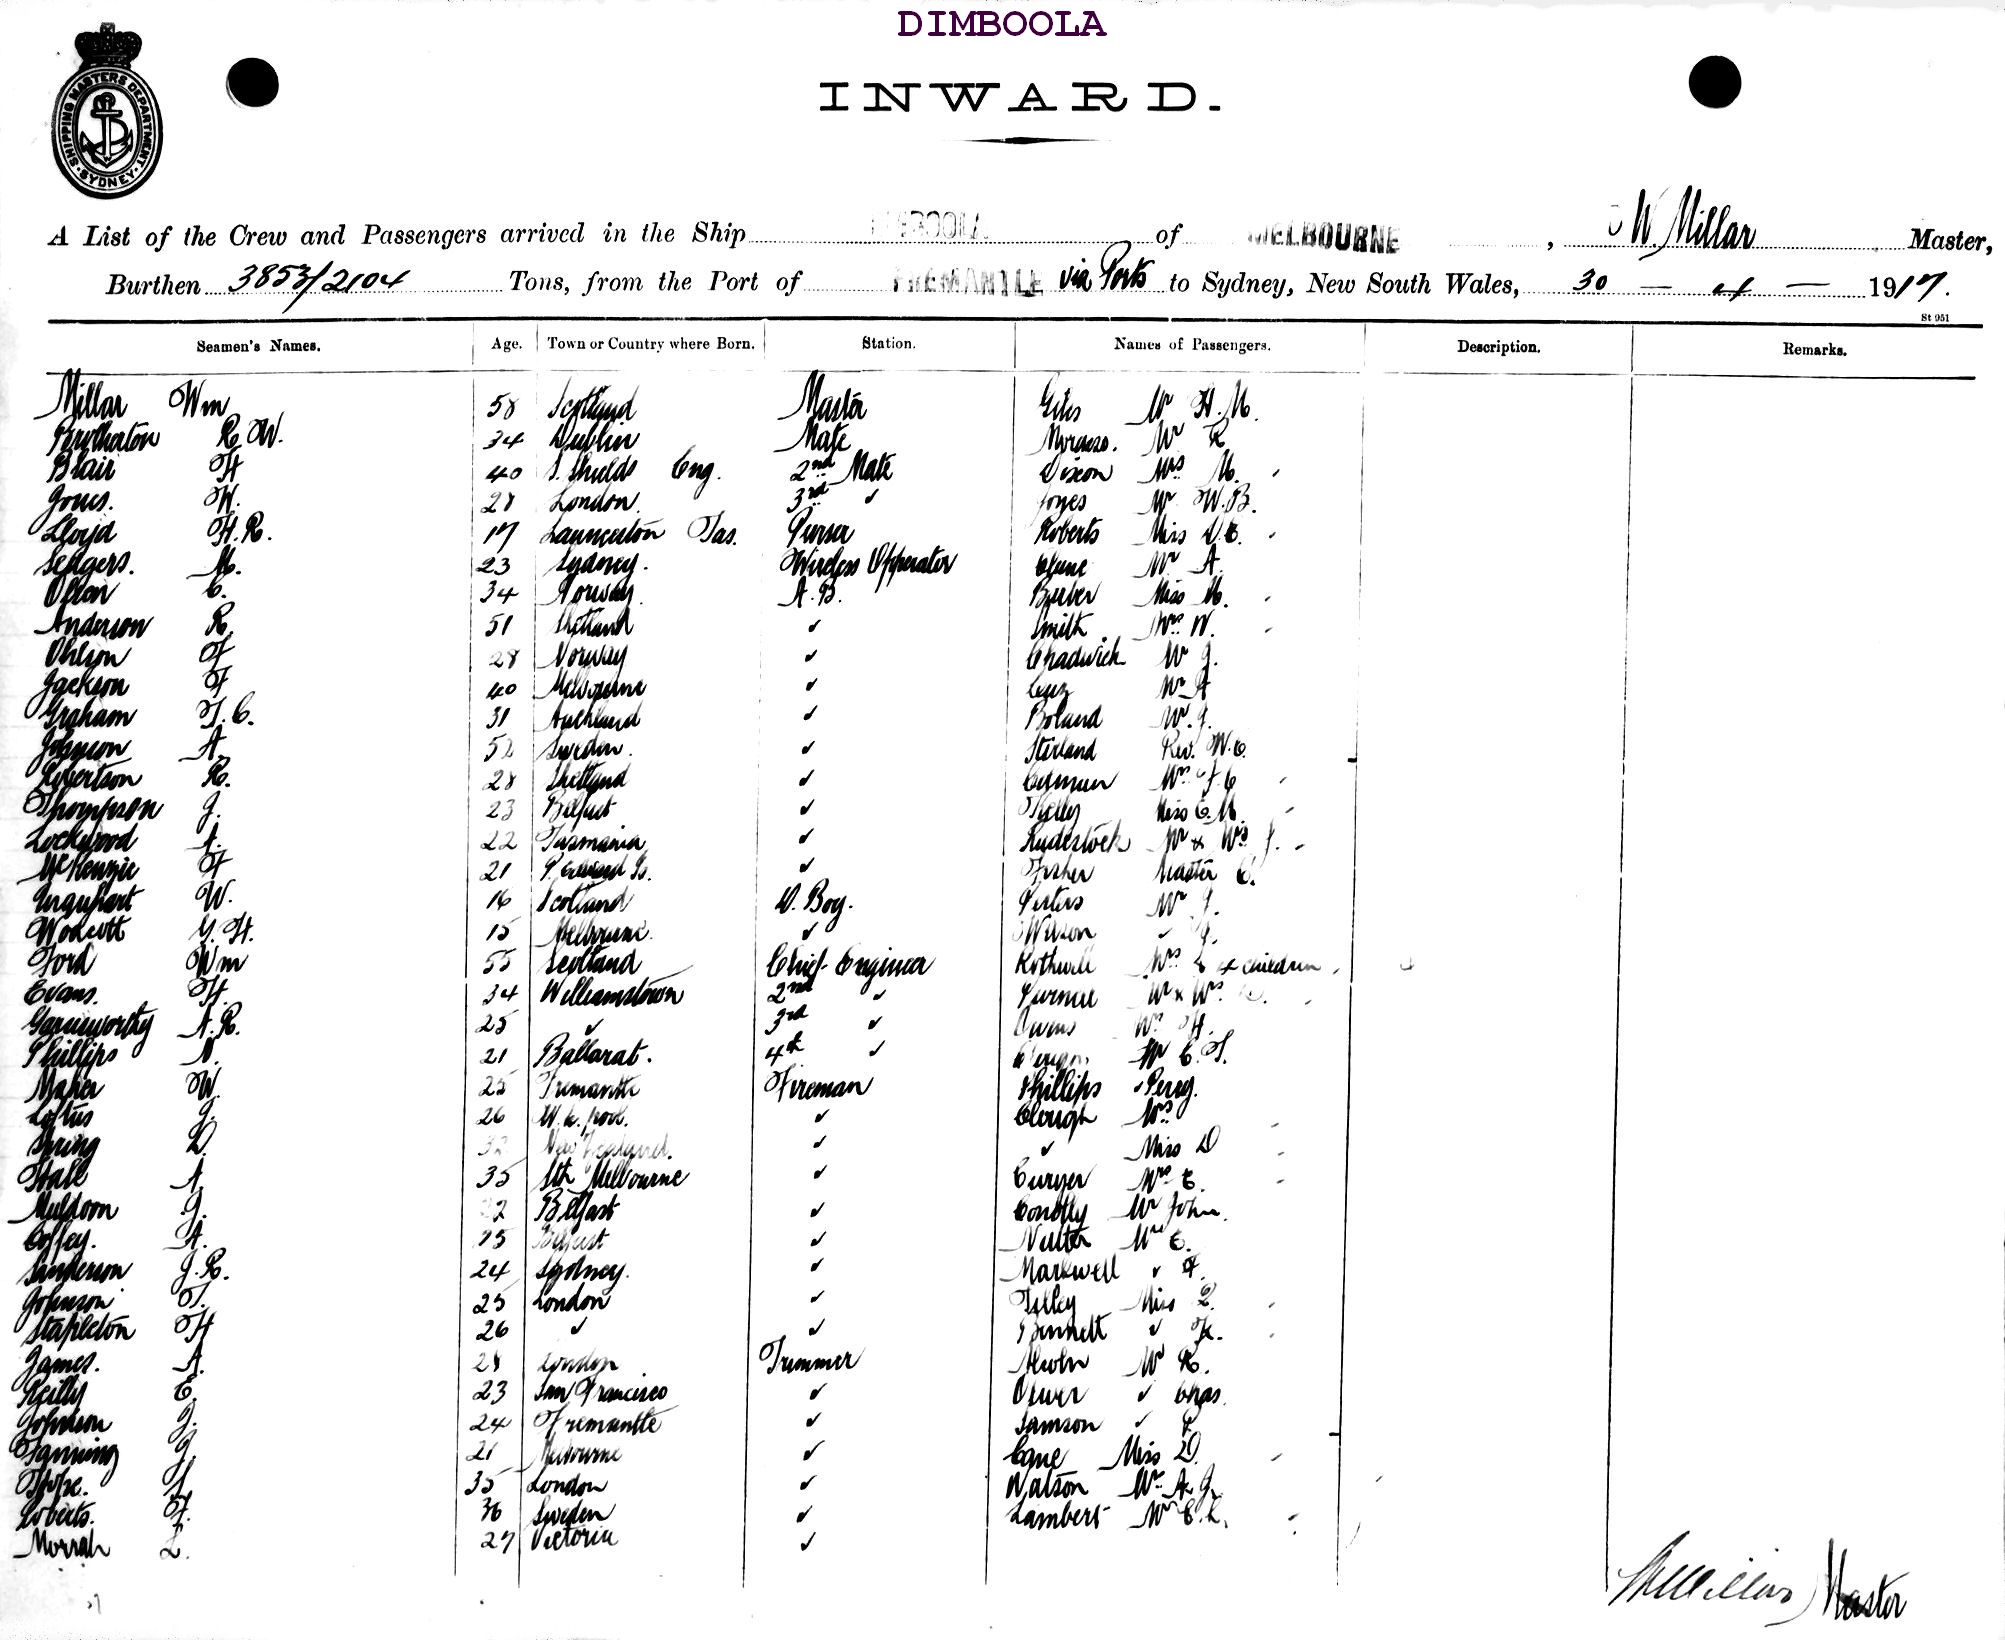 DIMBOOLA
INWARD.
SHIPPING MASTERS DEPARTMENT
SYDNEY
A List of the Crew and Passengers arrived in the Ship DIMBOOLA of MELBOURNE, W. Millar Master,
Burthen 3853/2104 Tons, from the Port of FREMANTLE via Ports to Sydney, New South Wales, 30 - 4 - 1917.
St 951
Seamen's Names. Age. Town or Country where Born. Station. Names of Passengers. Description. Remarks.
Millar Wm 58 Scotland Master Giles Mr H. M.
R. W. 34 Dublin Mate Mr R
Blair H 40 S. Shields Eng. 2nd Mate Dixon Mrs M.
Jones. W. 28 London 3rd ✓ Joyes Mr W. B.
Lloyd H. R. 17 Launceston Tas. Purser Roberts Miss D. E.
Sedgers. M. 23 Sydney. Wireless Opperator Clune Mr A
Olson C. 34 Norway A. B. Barber Miss M.
Anderson R 51 Shetland ✓ Smith Mrs W.
Ohlson F 28 Norway ✓ Chadwick Mr J.
Jackson F 40 Melbourne ✓ Mr A
Graham T. C. 31 Auckland ✓ Boland Mr J.
Johnson A. 52 Sweden. ✓ Stirland Rev. W. E.
Robertson R. 28 Shetland ✓ Mrs J C
Thompson J. 23 Belfast ✓ Kelly Miss E. M.
Lockwood A. 22 Tasmania ✓ Rudestock Mr & Mrs J.
McKenzie F 21 P. Edward Is. ✓ Fisher Master C.
Urquhart W. 16 Scotland D. Boy. Peters Mr J.
Wodcott G. H. 15 Melbourne. ✓ Wilson ✓ J.
Ford Wm 55 Scotland Chief Engineer Rothwell Mrs & 4 children
Evans. H. 34 Williamstown 2nd ✓ Mr & Mrs
Garnsworthy A. R. 25 ✓ 3rd ✓ Owens Mr H.
Phillips N. 21 Ballarat. 4th ✓ Mr C. T.
Maher W. 25 Fremantle Fireman Phillips ✓ Percy.
Loftus J. 26 ✓ Clough Mrs
Spring D. 32 New Zealand. ✓ ✓ Miss D
Hall A. 35 Sth Melbourne ✓ Curyer Mrs E.
Muldoon J. 22 Belfast ✓ Conolly Mr John.
Coffey. A. 25 Belfast ✓ Mrs E.
Sanderson J. R. 24 Sydney. ✓ Markwell ✓ F.
Johnson T. 25 London ✓ Tilley Miss L.
Stapleton H 26 ✓ ✓ Bennett ✓ K.
James. A. 28 London Trimmer Mr R.
Reilly E. 23 San Francisco ✓ Oliver ✓ Chas.
Johnson J. 24 Fremantle ✓ Samson ✓ R
Fanning J. 21 Melbourne ✓ Cane Miss D.
35 London ✓ Watson Mr A. J.
Roberts. F. 36 Sweden ✓ Lambert Mrs E. L.
Morrah L. 27 Victoria ✓
Master